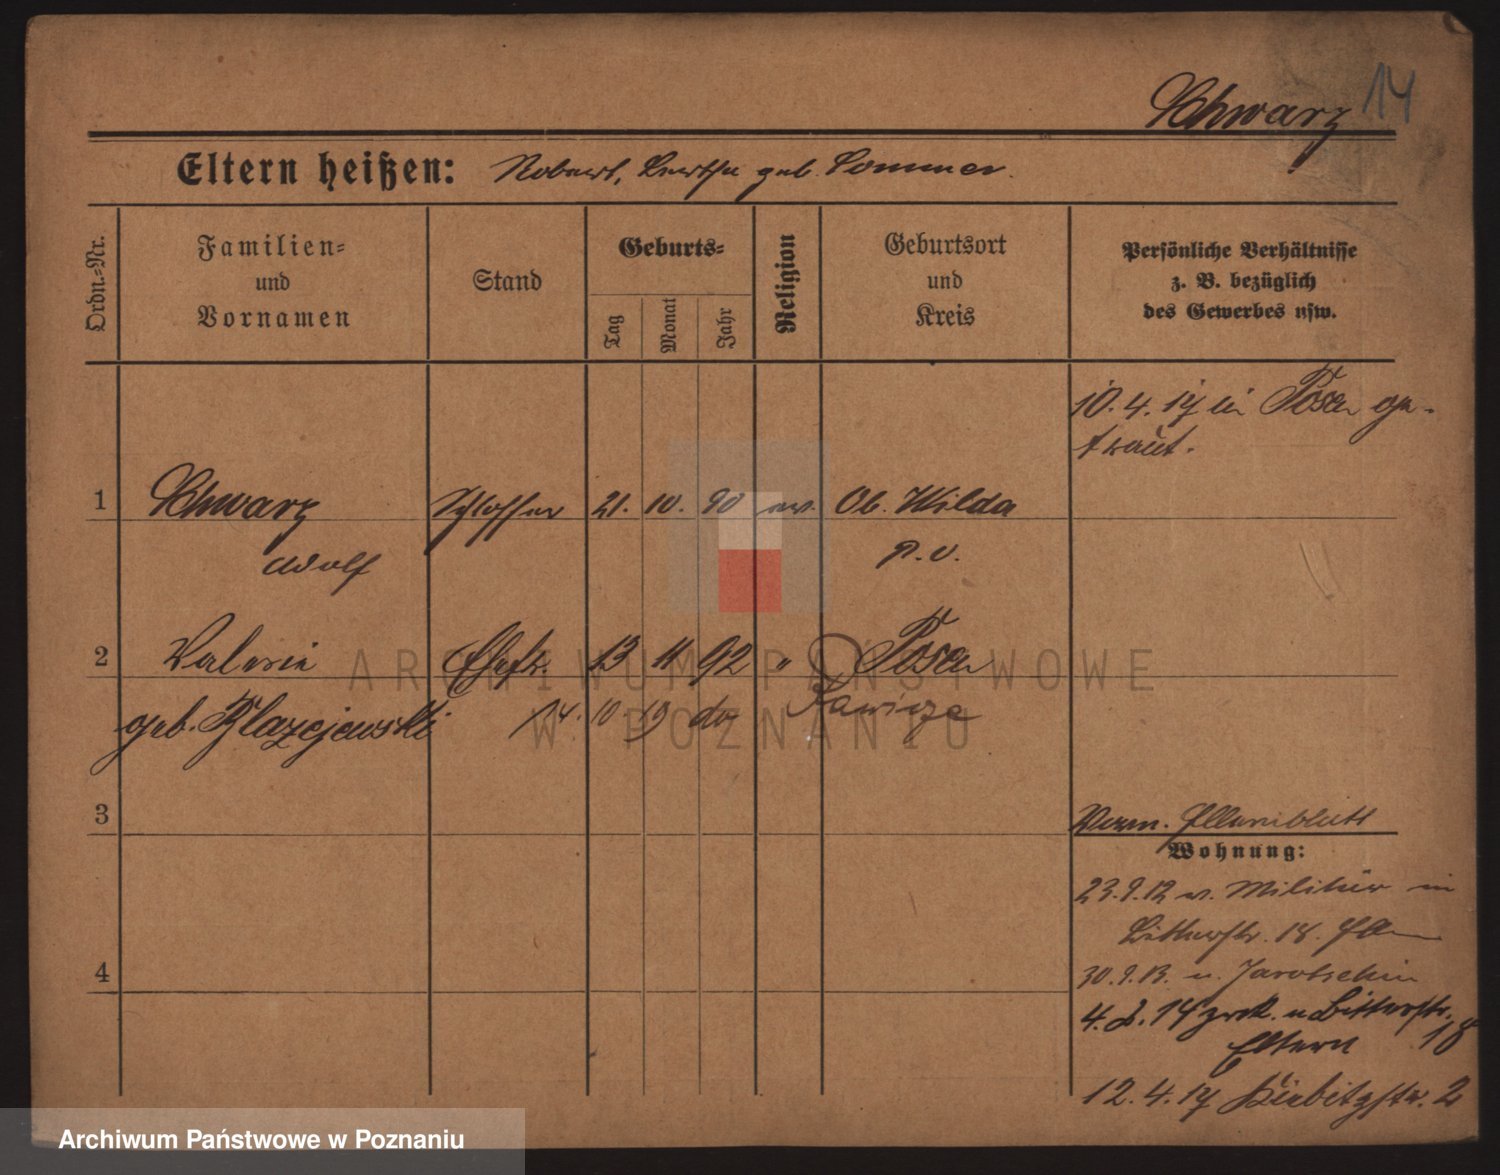 Schwarz 14
Eltern heißen: Robert, Bertha geb. Sommer.
Ordn.=Nr.
Familien=
und
Vornamen
Stand
Geburts=
Tag
Monat
Jahr
Religion
Geburtsort
und
Kreis
Persönliche Verhältnisse
z. B. bezüglich
des Gewerbes usw.
10.4.17 in Posen ge-
traut.
1 Schwarz Schlosser 21. 10. 90 ev. Ob. Wilda
Adolf P. O.
2 Valerie Ehefr. 13 11 92 " Posen
geb. Blazejewski 14. 10 19
3
4
Verm. Elternblatt
Wohnung:
23.9.12 v. Militär in
Bitterstr. 18.
30.9.13. n. Jarotschin
4.2.14 zrck. n Bitterstr. 18
Eltern
12.4.17 Kiebitzstr. 2
ARCHIWUM PAŃSTWOWE
W POZNANIU
Archiwum Państwowe w Poznaniu